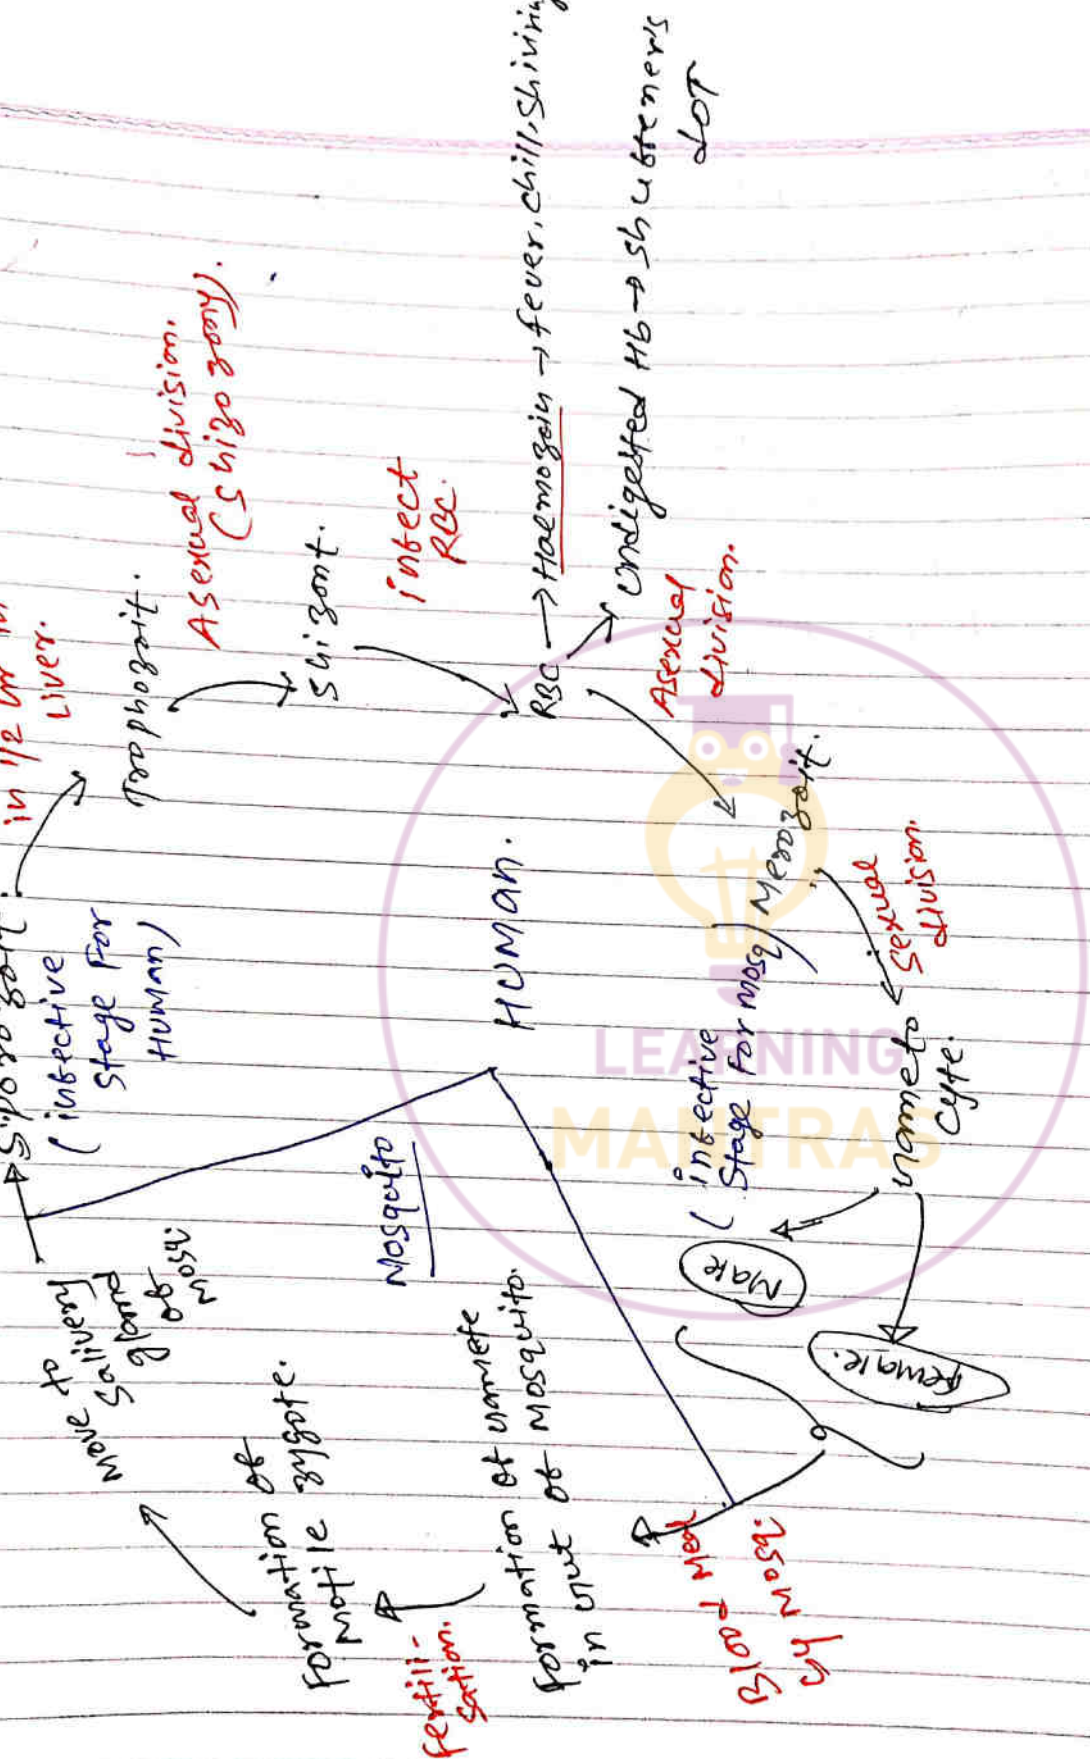 in 1/2 hr in
Liver.
Sporozoit.
(infective
Stage For
Human)
Trophozoit.
Asexual division.
(Shizozony).
Shizont.
infect
RBC.
RBC → Haemozoin → fever, chill, Shivring
Undigested Hb → Shubfener's
dot
Asexual
division.
Merozoit.
(infective
Stage For Mosq)
Sexual
division.
Gameto
cyte.
Male
Female.
HUMAN.
Mosquito
Blood Meal
by Mosq.
Formation of Gamete
in Gut of Mosquito.
fertili-
sation.
Formation of
Motile zygote.
Move to
Salivery
gland
of
Mosq.
LEARNING
MANTRAS